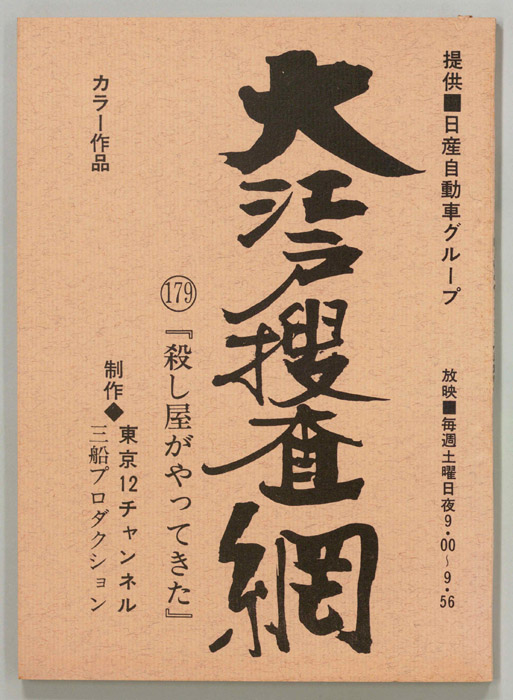 提供■日産自動車グループ
放映■毎週土曜日夜9・00〜9・56
大江戸捜査網
179『殺し屋がやってきた』
カラー作品
制作◆東京12チャンネル
三船プロダクション